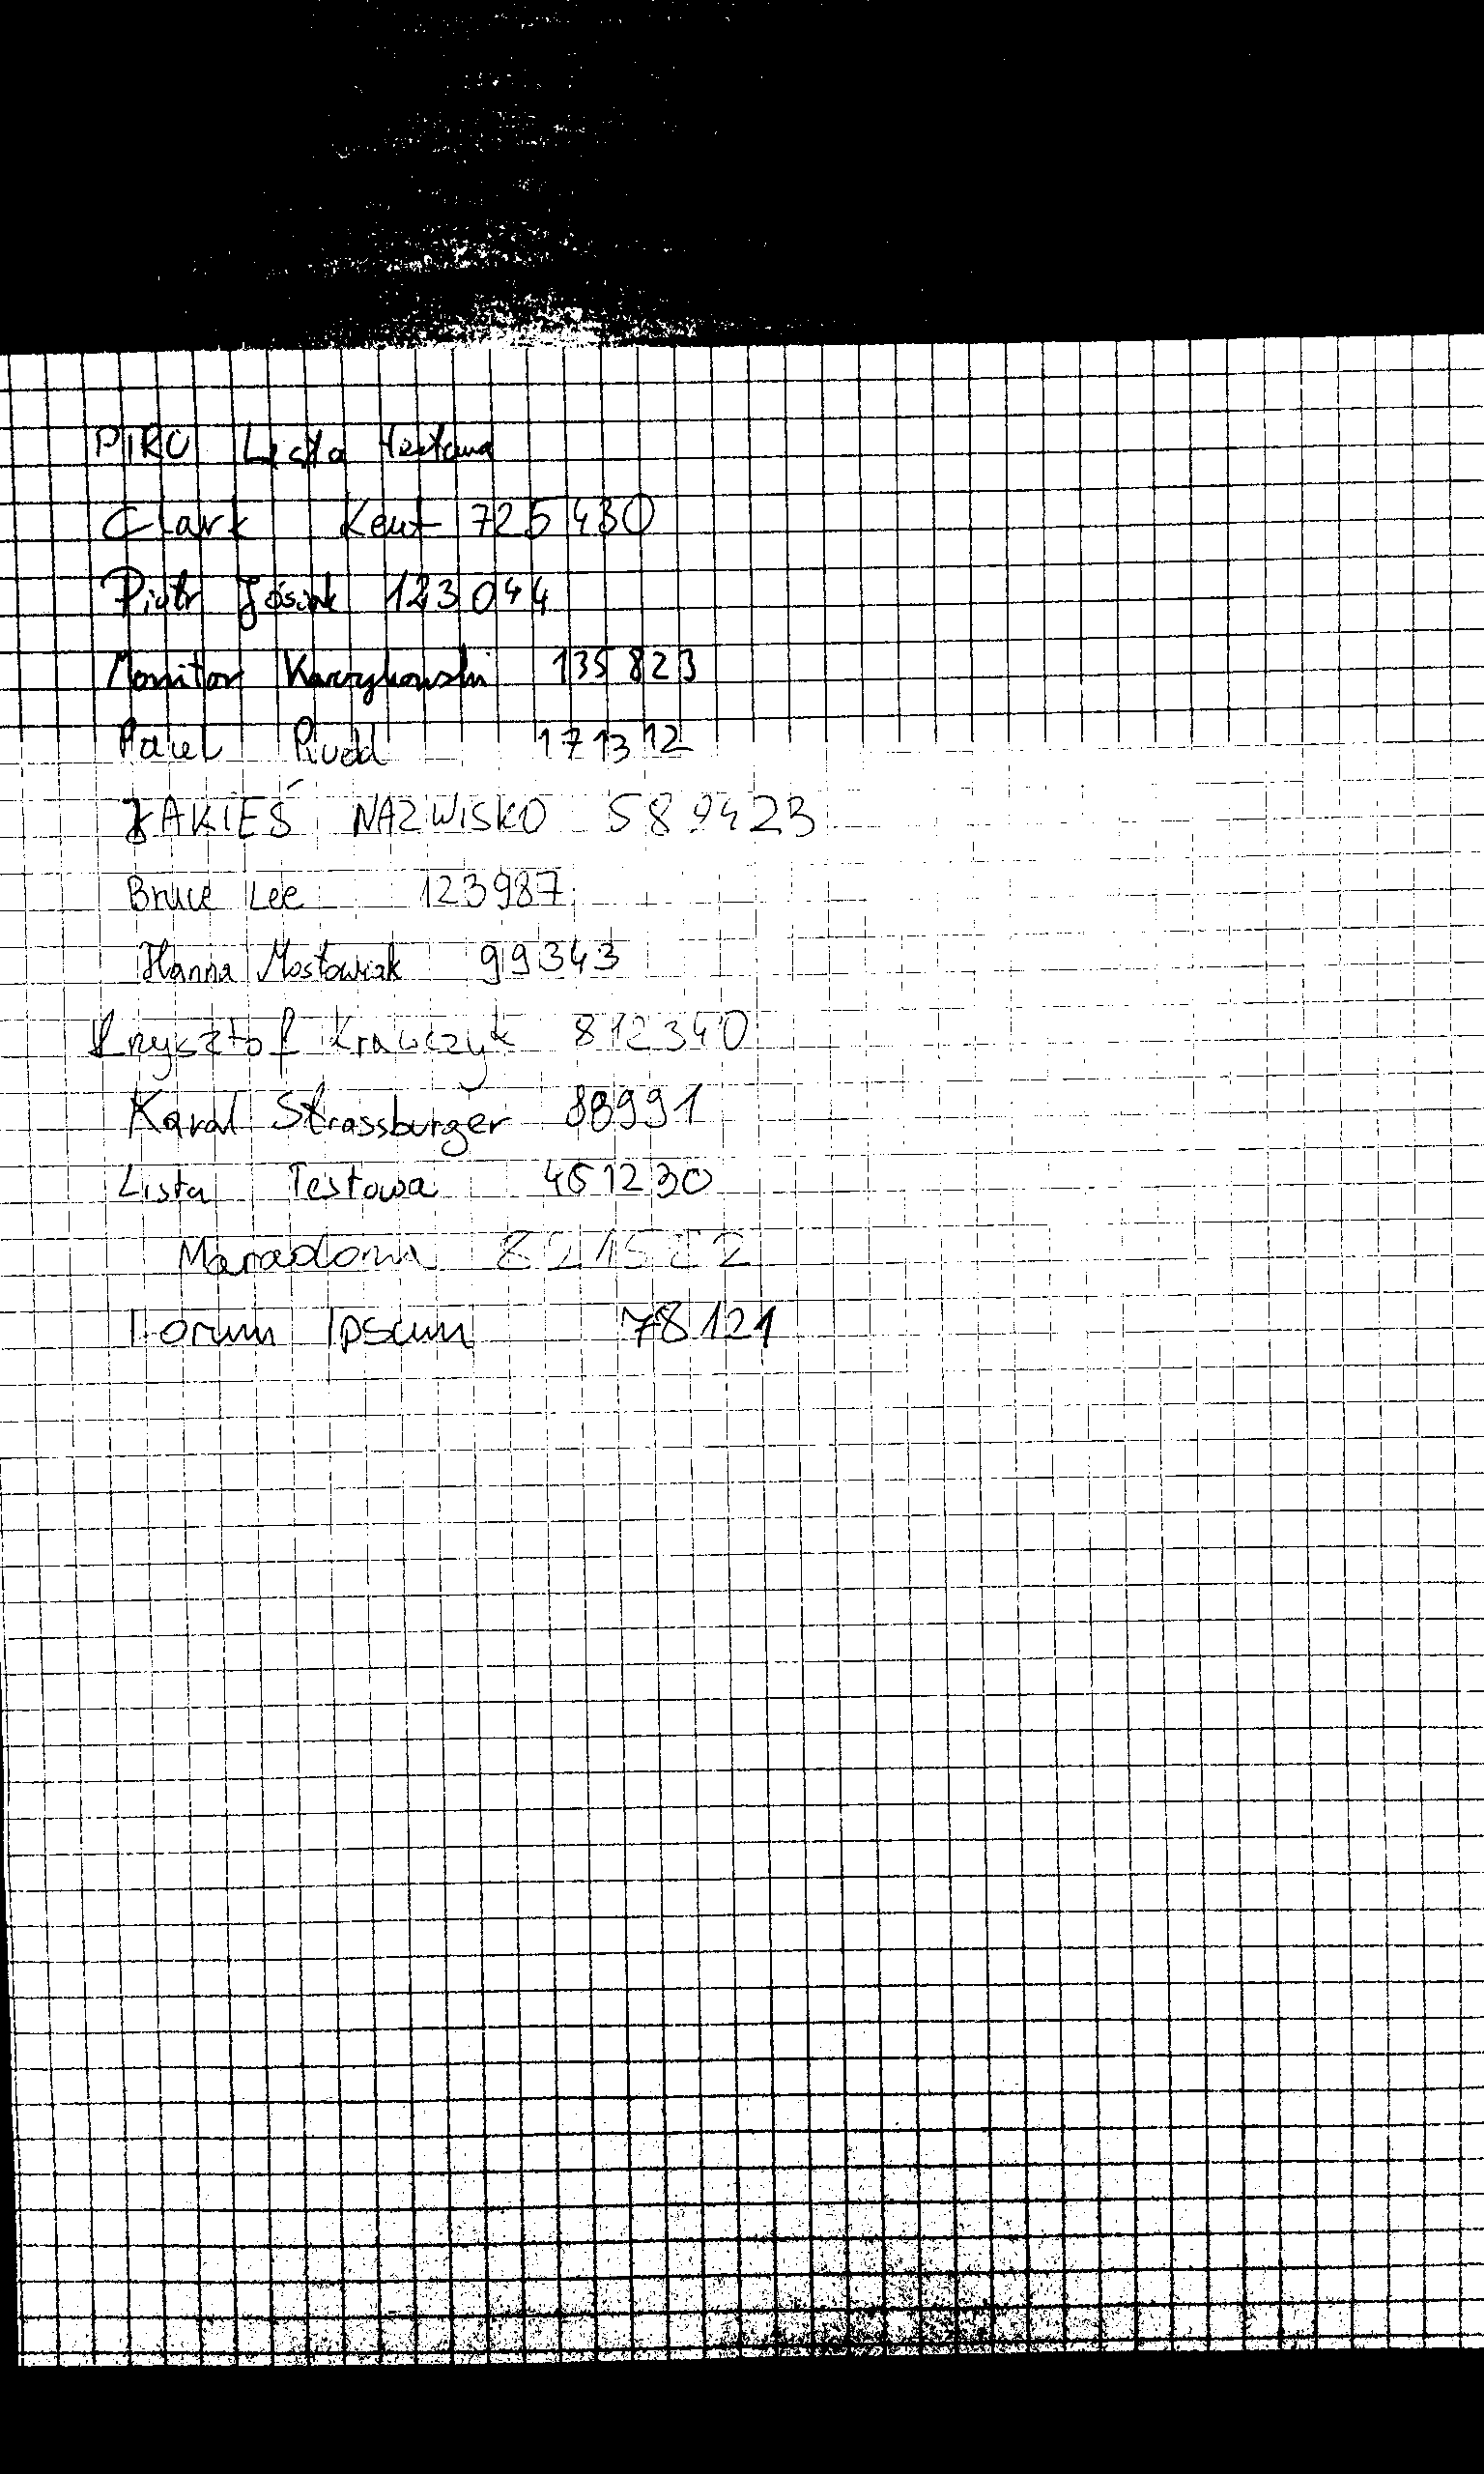 PIRO Lista testowa
Clark Kent 725430
Piotr Jósiak 123044
Monitor Karzykowski 135823
Paul Rudd 171312
JAKIEŚ NAZWISKO 589423
Bruce Lee 123987
Hanna Mostowiak 99343
Krzysztof Krawczyk 812340
Karol Strassburger 88991
Lista Testowa 461230
Maradona
Lorum Ipsum 78121